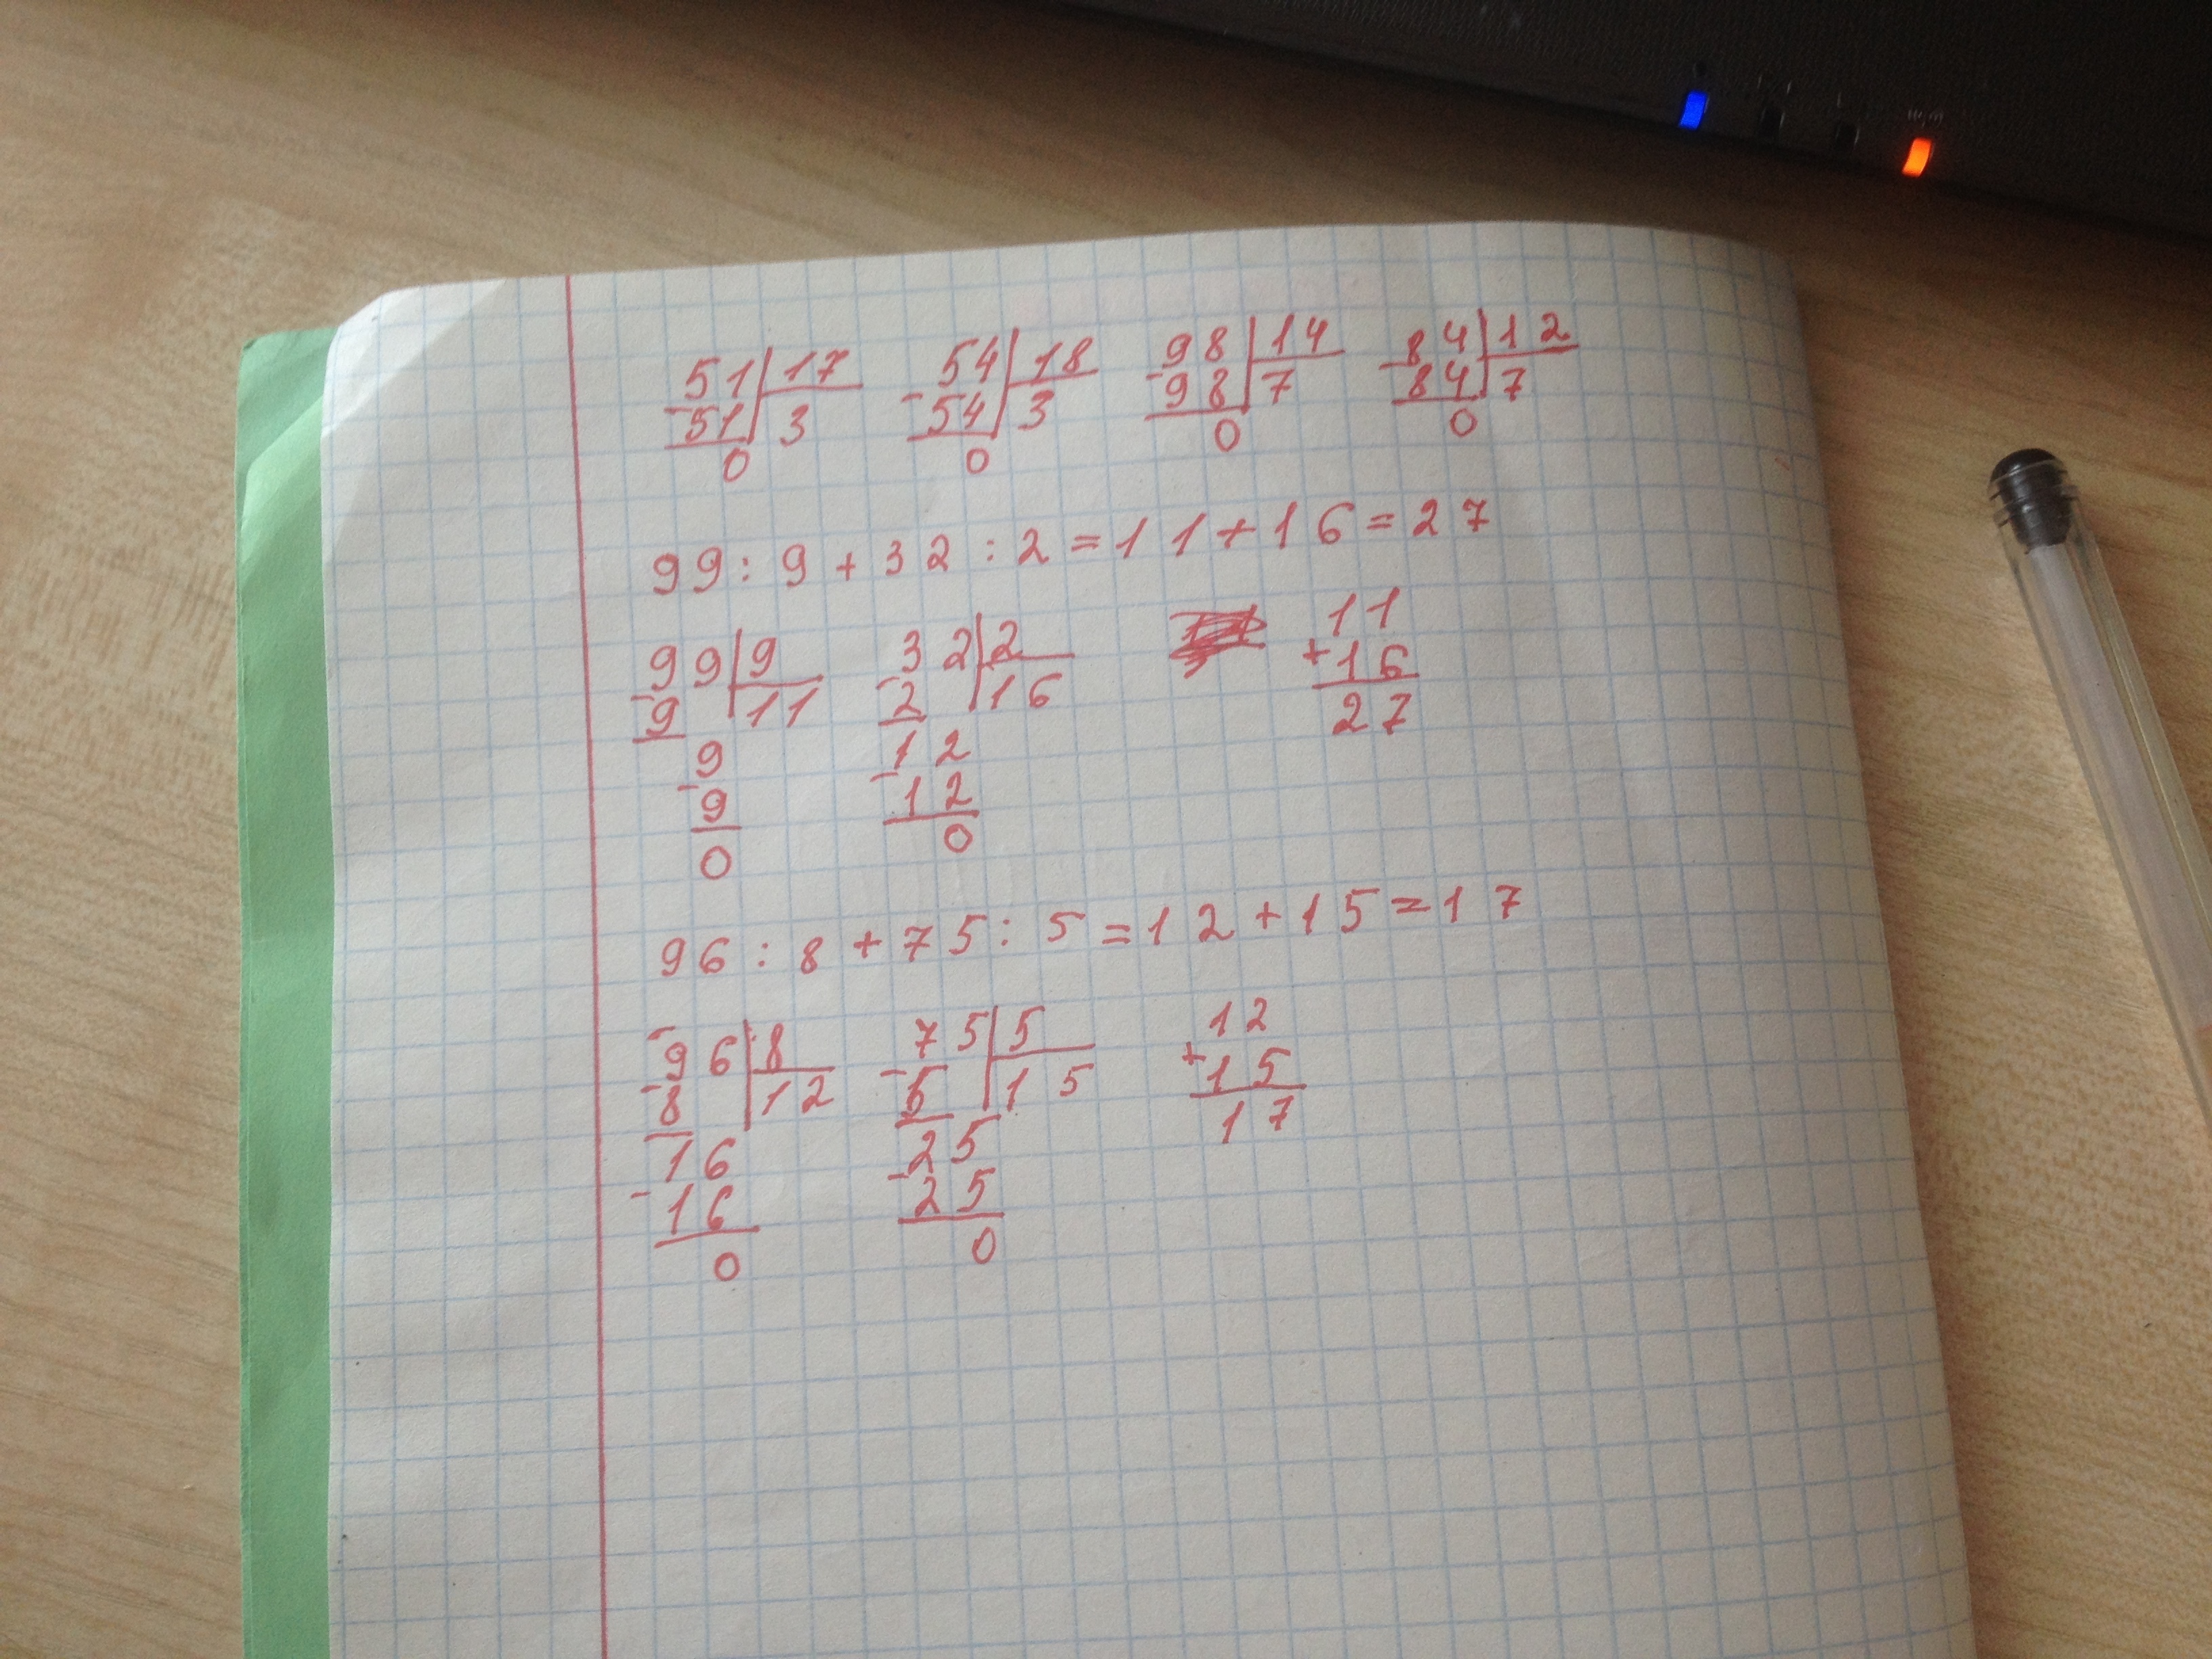 51 17 54 18 98 14 84 12
- 51 3 - 54 3 - 98 7 - 84 7
0 0 0 0
99 : 9 + 32 : 2 = 11 + 16 = 27
99 9 32 2 11
- 9 11 - 2 16 + 16
9 12 27
- 9 - 12
0 0
96 : 8 + 75 : 5 = 12 + 15 = 17
96 8 75 5 12
- 8 12 - 5 15 + 15
16 25 17
- 16 - 25
0 0